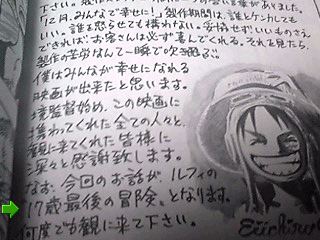 「12月、みんなで幸せに!」製作期間は、誰とケンカしても
いい。誰を怒らせても構わない。妥協せずいいものさえ
できれば、お客さんは必ず喜んでくれる。それを見たら、
製作の苦労なんて一瞬で吹き飛ぶ。
僕はみんなが幸せになれる
映画が出来たと思います。
境監督始め、この映画に
携わってくれた全ての人々と、
観に来てくれた皆様に
深々と感謝致します。
なお、今回のお話が、ルフィの
"17歳最後の冒険"となります。
何度でも観に来て下さい。
Eiichiro